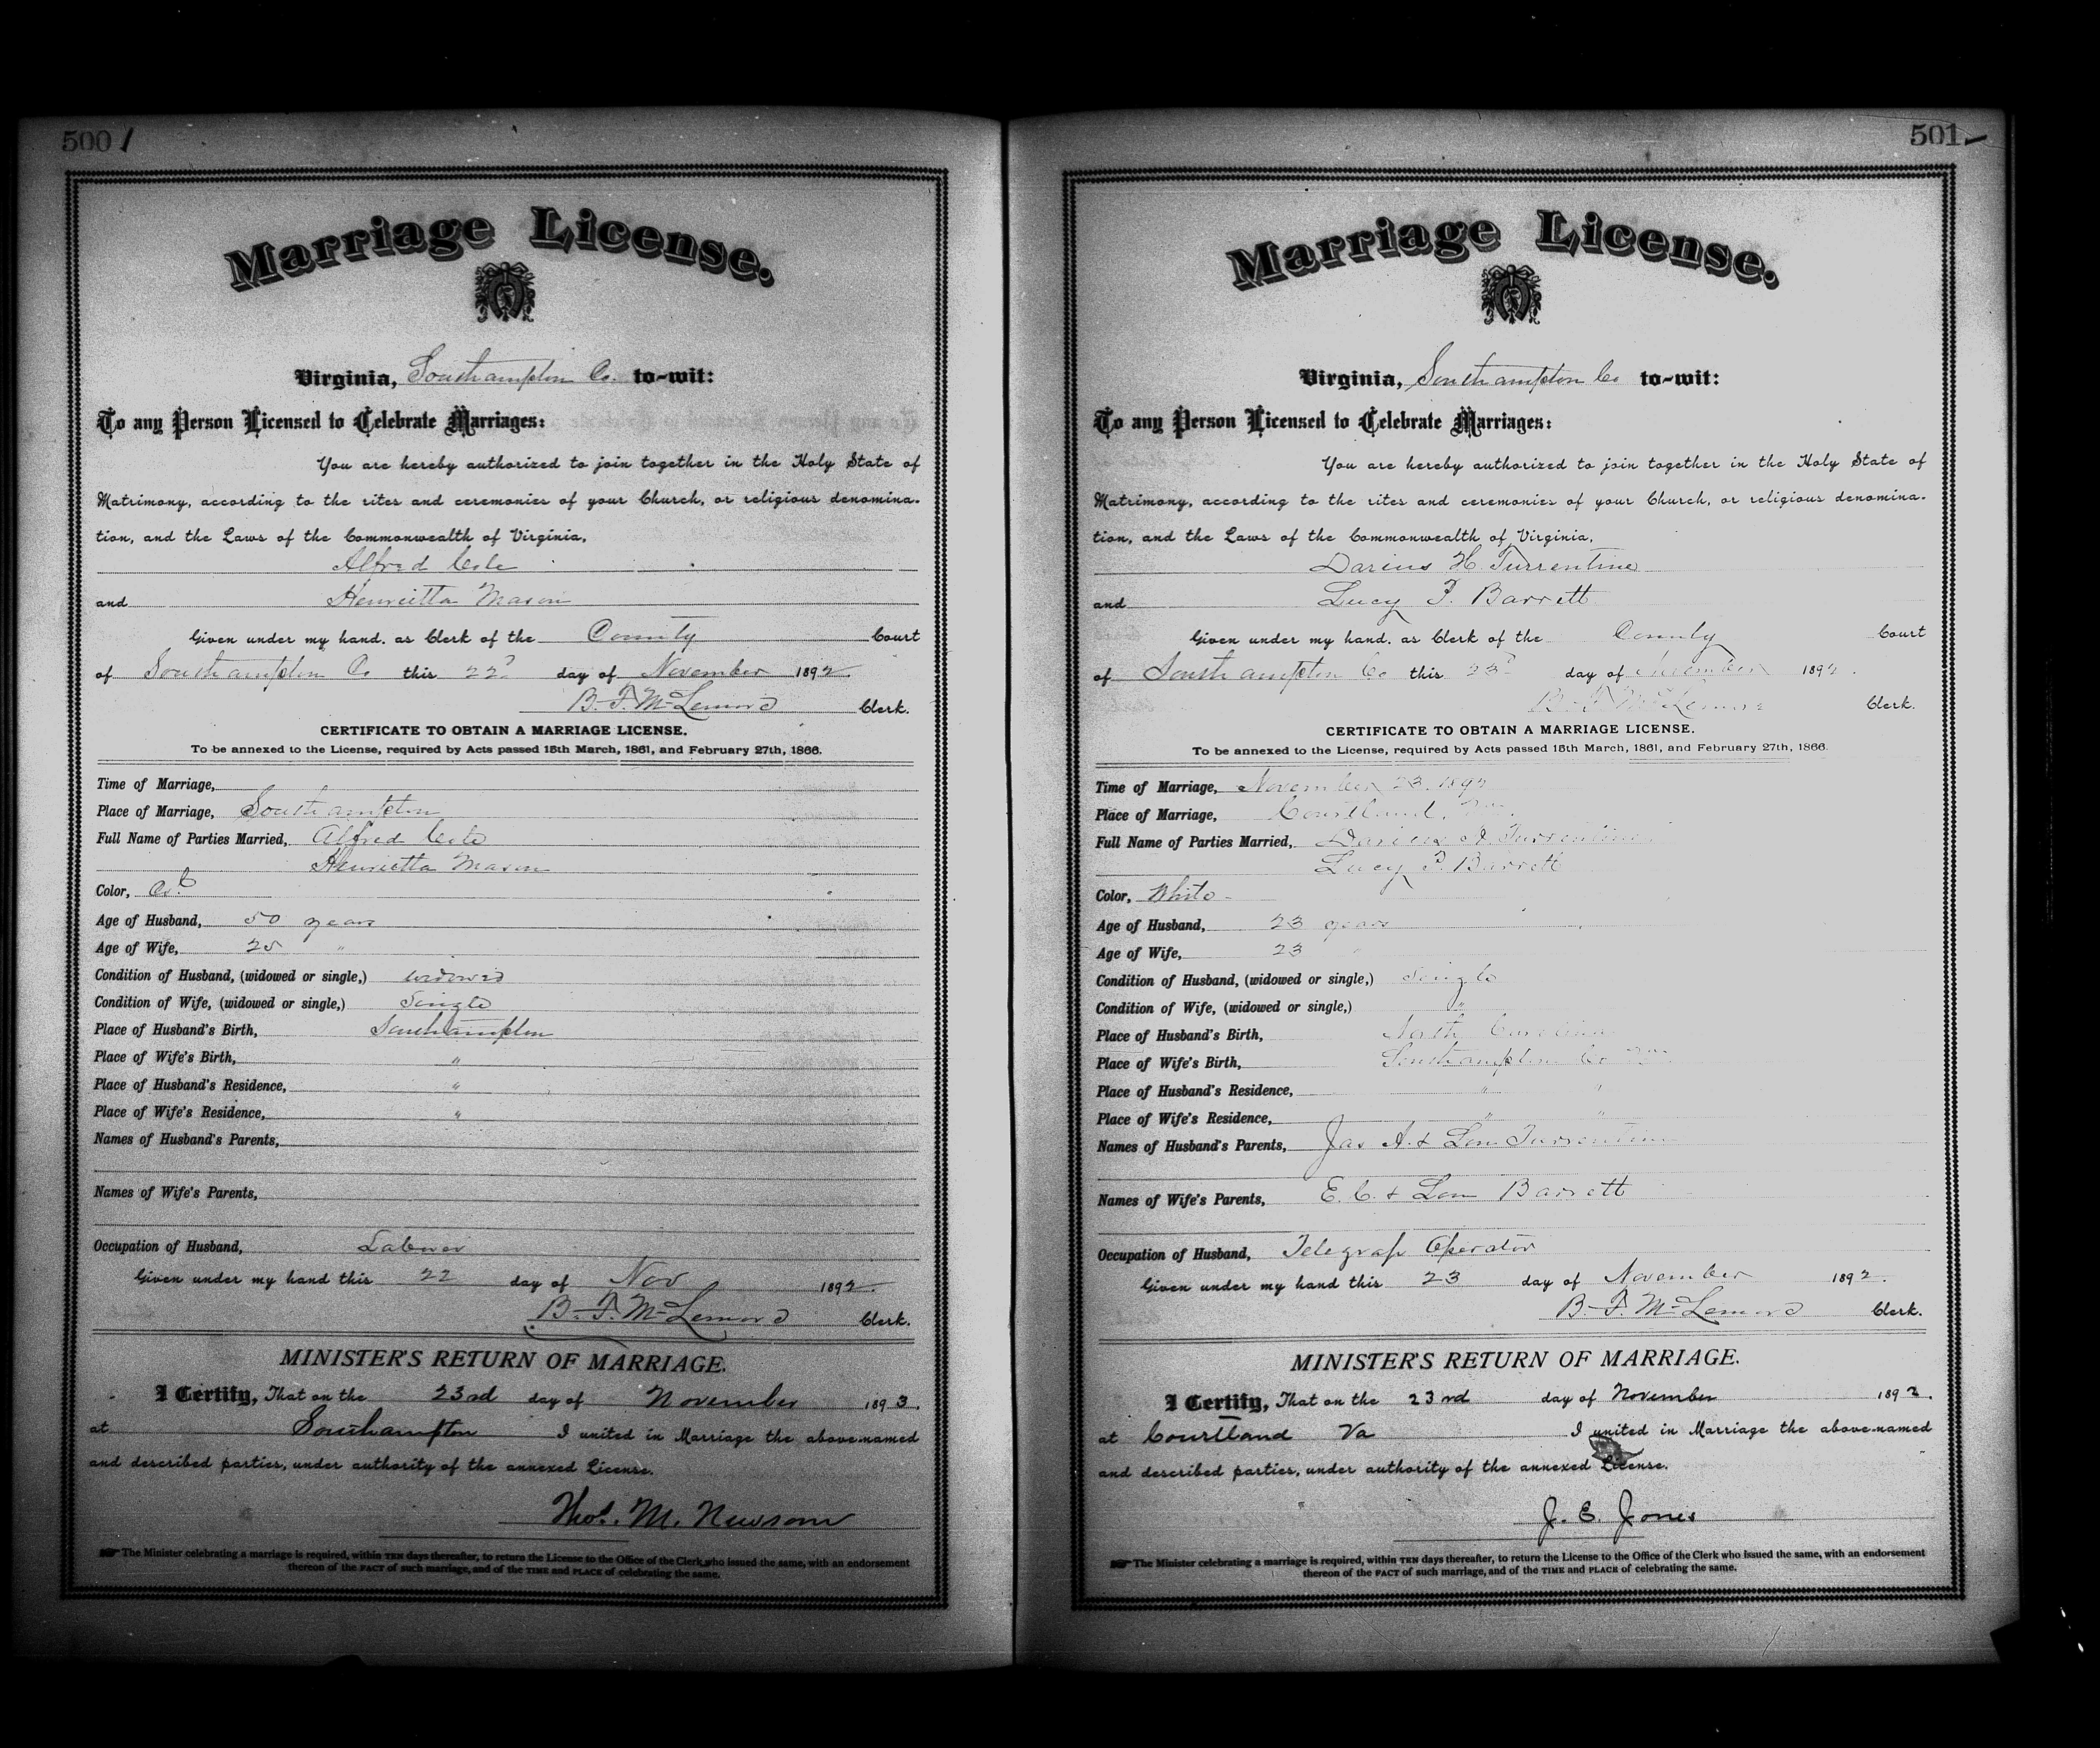 500
Marriage License.
Virginia, Southampton Co. to-wit:
To any Person Licensed to Celebrate Marriages:
You are hereby authorized to join together in the Holy State of
Matrimony, according to the rites and ceremonies of your Church, or religious denomina-
tion, and the Laws of the Commonwealth of Virginia,
Alfred Cole
and Henrietta Mason
Given under my hand, as Clerk of the County Court
of Southampton Co this 22d day of November 1892
B. F. McLemore Clerk.
CERTIFICATE TO OBTAIN A MARRIAGE LICENSE.
To be annexed to the License, required by Acts passed 15th March, 1861, and February 27th, 1866.
Time of Marriage,
Place of Marriage, Southampton
Full Name of Parties Married, Alfred Cole
Henrietta Mason
Color, Cold
Age of Husband, 50 years
Age of Wife, 25 "
Condition of Husband, (widowed or single,) widowed
Condition of Wife, (widowed or single,) Single
Place of Husband's Birth, Southampton
Place of Wife's Birth, "
Place of Husband's Residence, "
Place of Wife's Residence, "
Names of Husband's Parents,
Names of Wife's Parents,
Occupation of Husband, Laborer
Given under my hand this 22 day of Nov 1892.
B. F. McLemore Clerk.
MINISTER'S RETURN OF MARRIAGE.
I Certify, That on the 23rd day of November 1893.
at Southampton I united in Marriage the above-named
and described parties, under authority of the annexed License.
Thos. M. Newsom
The Minister celebrating a marriage is required, within TEN days thereafter, to return the License to the Office of the Clerk who issued the same, with an endorsement
thereon of the FACT of such marriage, and of the TIME and PLACE of celebrating the same.
501
Marriage License.
Virginia, Southampton Co to-wit:
To any Person Licensed to Celebrate Marriages:
You are hereby authorized to join together in the Holy State of
Matrimony, according to the rites and ceremonies of your Church, or religious denomina-
tion, and the Laws of the Commonwealth of Virginia,
Darius H Turrentine
and Lucy P. Barrett
Given under my hand, as Clerk of the County Court
of Southampton Co this 23d day of November 1892.
B. F. McLemore Clerk.
CERTIFICATE TO OBTAIN A MARRIAGE LICENSE.
To be annexed to the License, required by Acts passed 15th March, 1861, and February 27th, 1866.
Time of Marriage, November 23, 1892
Place of Marriage, Courtland, Va.
Full Name of Parties Married, Darius H Turrentine
Lucy P. Barrett
Color, White
Age of Husband, 23 years
Age of Wife, 23 "
Condition of Husband, (widowed or single,) Single
Condition of Wife, (widowed or single,) "
Place of Husband's Birth, North Carolina
Place of Wife's Birth, Southampton Co Va
Place of Husband's Residence, " "
Place of Wife's Residence, " "
Names of Husband's Parents, Jas A. & Lou Turrentine
Names of Wife's Parents, E. C. & Lou Barrett
Occupation of Husband, Telegraph Operator
Given under my hand this 23 day of November 1892.
B. F. McLemore Clerk.
MINISTER'S RETURN OF MARRIAGE.
I Certify, That on the 23rd day of November 1892.
at Courtland Va I united in Marriage the above-named
and described parties, under authority of the annexed License.
J. E. Jones
The Minister celebrating a marriage is required, within TEN days thereafter, to return the License to the Office of the Clerk who issued the same, with an endorsement
thereon of the FACT of such marriage, and of the TIME and PLACE of celebrating the same.